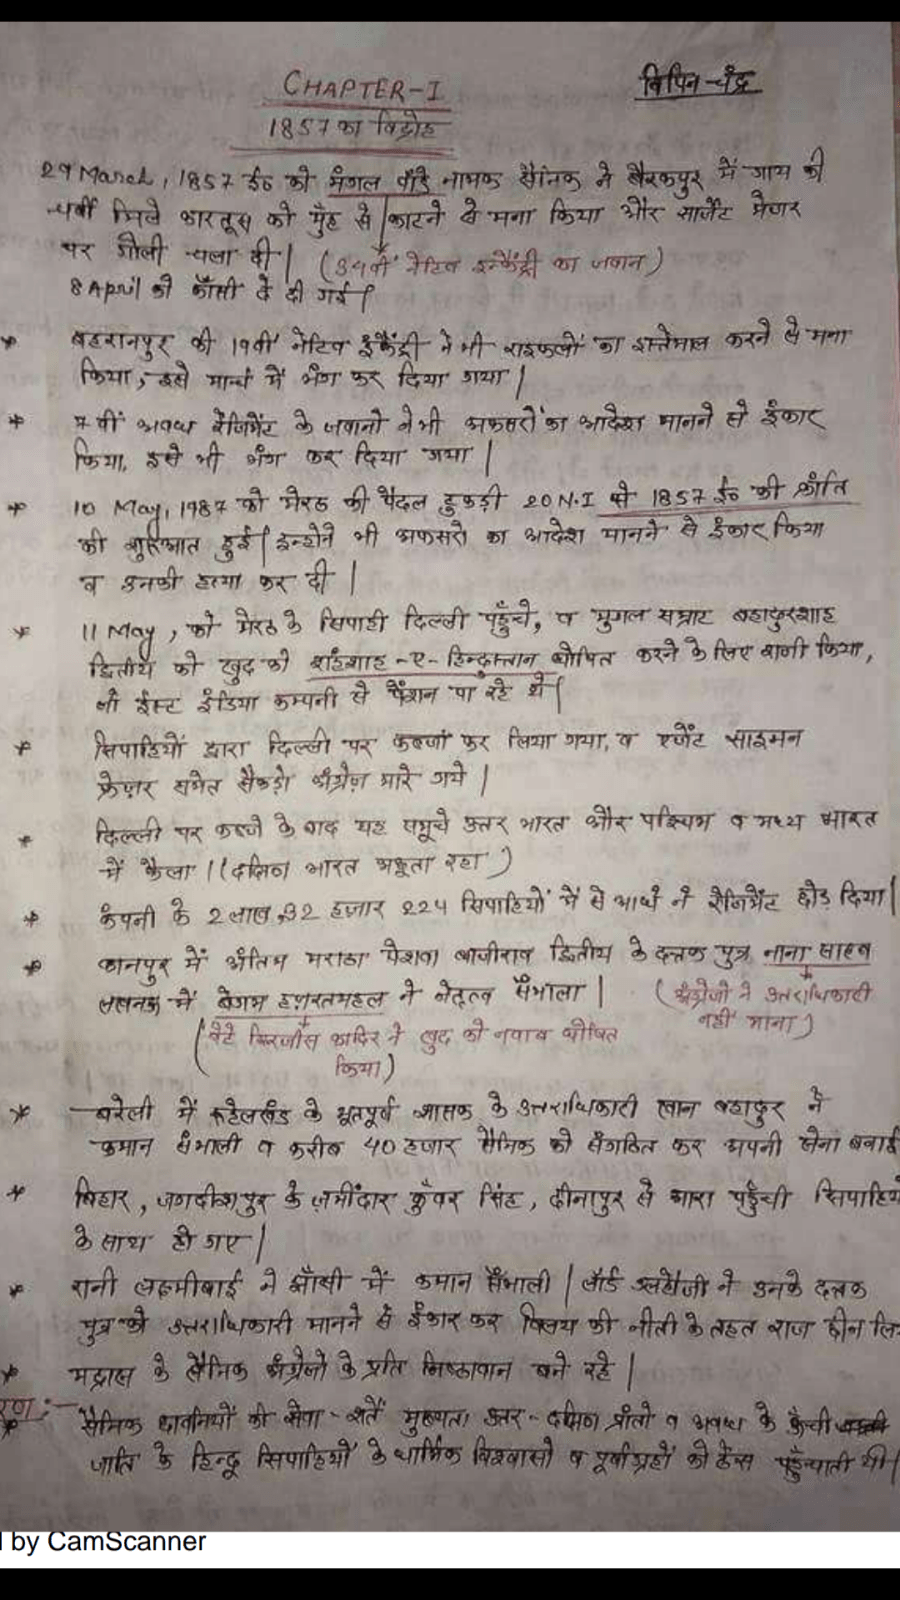 CHAPTER-I
विपिन-चंद्र
1857 का विद्रोह
29 March, 1857 ई० को मंगल पांडे नामक सैनिक ने बैरकपुर में गाय की
चर्बी मिले कारतूस को मुँह से काटने से मना किया और सार्जेंट मेजर
पर गोली चला दी | (34वीं नेटिव इन्फैंट्री का जवान)
8 April को फाँसी दे दी गई |
* बहरामपुर की 19वीं नेटिव इंफैंट्री ने भी राइफलों का इस्तेमाल करने से मना
किया, इसे मार्च में भंग कर दिया गया |
* 7 वीं अवध रेजिमेंट के जवानो ने भी अफसरों का आदेश मानने से इंकार
किया, इसे भी भंग कर दिया गया |
* 10 May, 1987 को मेरठ की पैदल टुकड़ी 20 N.I से 1857 ई० की क्रांति
की शुरुआत हुई | इन्होने भी अफसरो का आदेश मानने से इंकार किया
व उनकी हत्या कर दी |
* 11 May, को मेरठ के सिपाही दिल्ली पहुँचे, व मुगल सम्राट बहादुरशाह
द्वितीय को खुद को शहंशाह-ए-हिन्दुस्तान घोषित करने के लिए राजी किया,
जो ईस्ट इंडिया कम्पनी से पेंशन पा रहे थे |
* सिपाहियों द्वारा दिल्ली पर कब्जा कर लिया गया, व एजेंट साइमन
फ्रेज़र समेत सैकड़ो अंग्रेज़ मारे गये |
* दिल्ली पर कब्जे के बाद यह समूचे उत्तर भारत और पश्चिम व मध्य भारत
में फैला | (दक्षिण भारत अछूता रहा)
* कंपनी के 2 लाख, 32 हज़ार 224 सिपाहियों में से आधे ने रेजिमेंट छोड़ दिया |
* कानपुर में अंतिम मराठा पेशवा बाजीराव द्वितीय के दत्तक पुत्र नाना साहब
लखनऊ में बेगम हज़रतमहल ने नेतृत्व संभाला | (अंग्रेजो ने उत्तराधिकारी
नहीं माना)
(बेटे बिरजीस कादिर ने खुद को नवाब घोषित
किया)
* बरेली में रुहेलखंड के भूतपूर्व शासक के उत्तराधिकारी खान बहादुर ने
कमान संभाली व करीब 40 हजार सैनिक को संगठित कर अपनी सेना बनाई
* बिहार, जगदीशपुर के ज़मींदार कुँवर सिंह, दीनापुर से आरा पहुँची सिपाहिय
के साथ हो गए |
* रानी लक्ष्मीबाई ने झाँसी में कमान सँभाली | लॉर्ड डलहौजी ने उनके दत्तक
पुत्र को उत्तराधिकारी मानने से इंकार कर विलय की नीती के तहत राज छीन लि
* मद्रास के सैनिक अंग्रेजो के प्रति निष्ठावान बने रहे |
रण :-
* सैनिक छावनियों की सेवा-शर्तें मुख्यतः उत्तर-दक्षिण प्रांतो व अवध के ऊँची
जाति के हिन्दू सिपाहियों के धार्मिक विश्वासो व पूर्वाग्रहों को ठेस पहुँचाती थी |
l by CamScanner